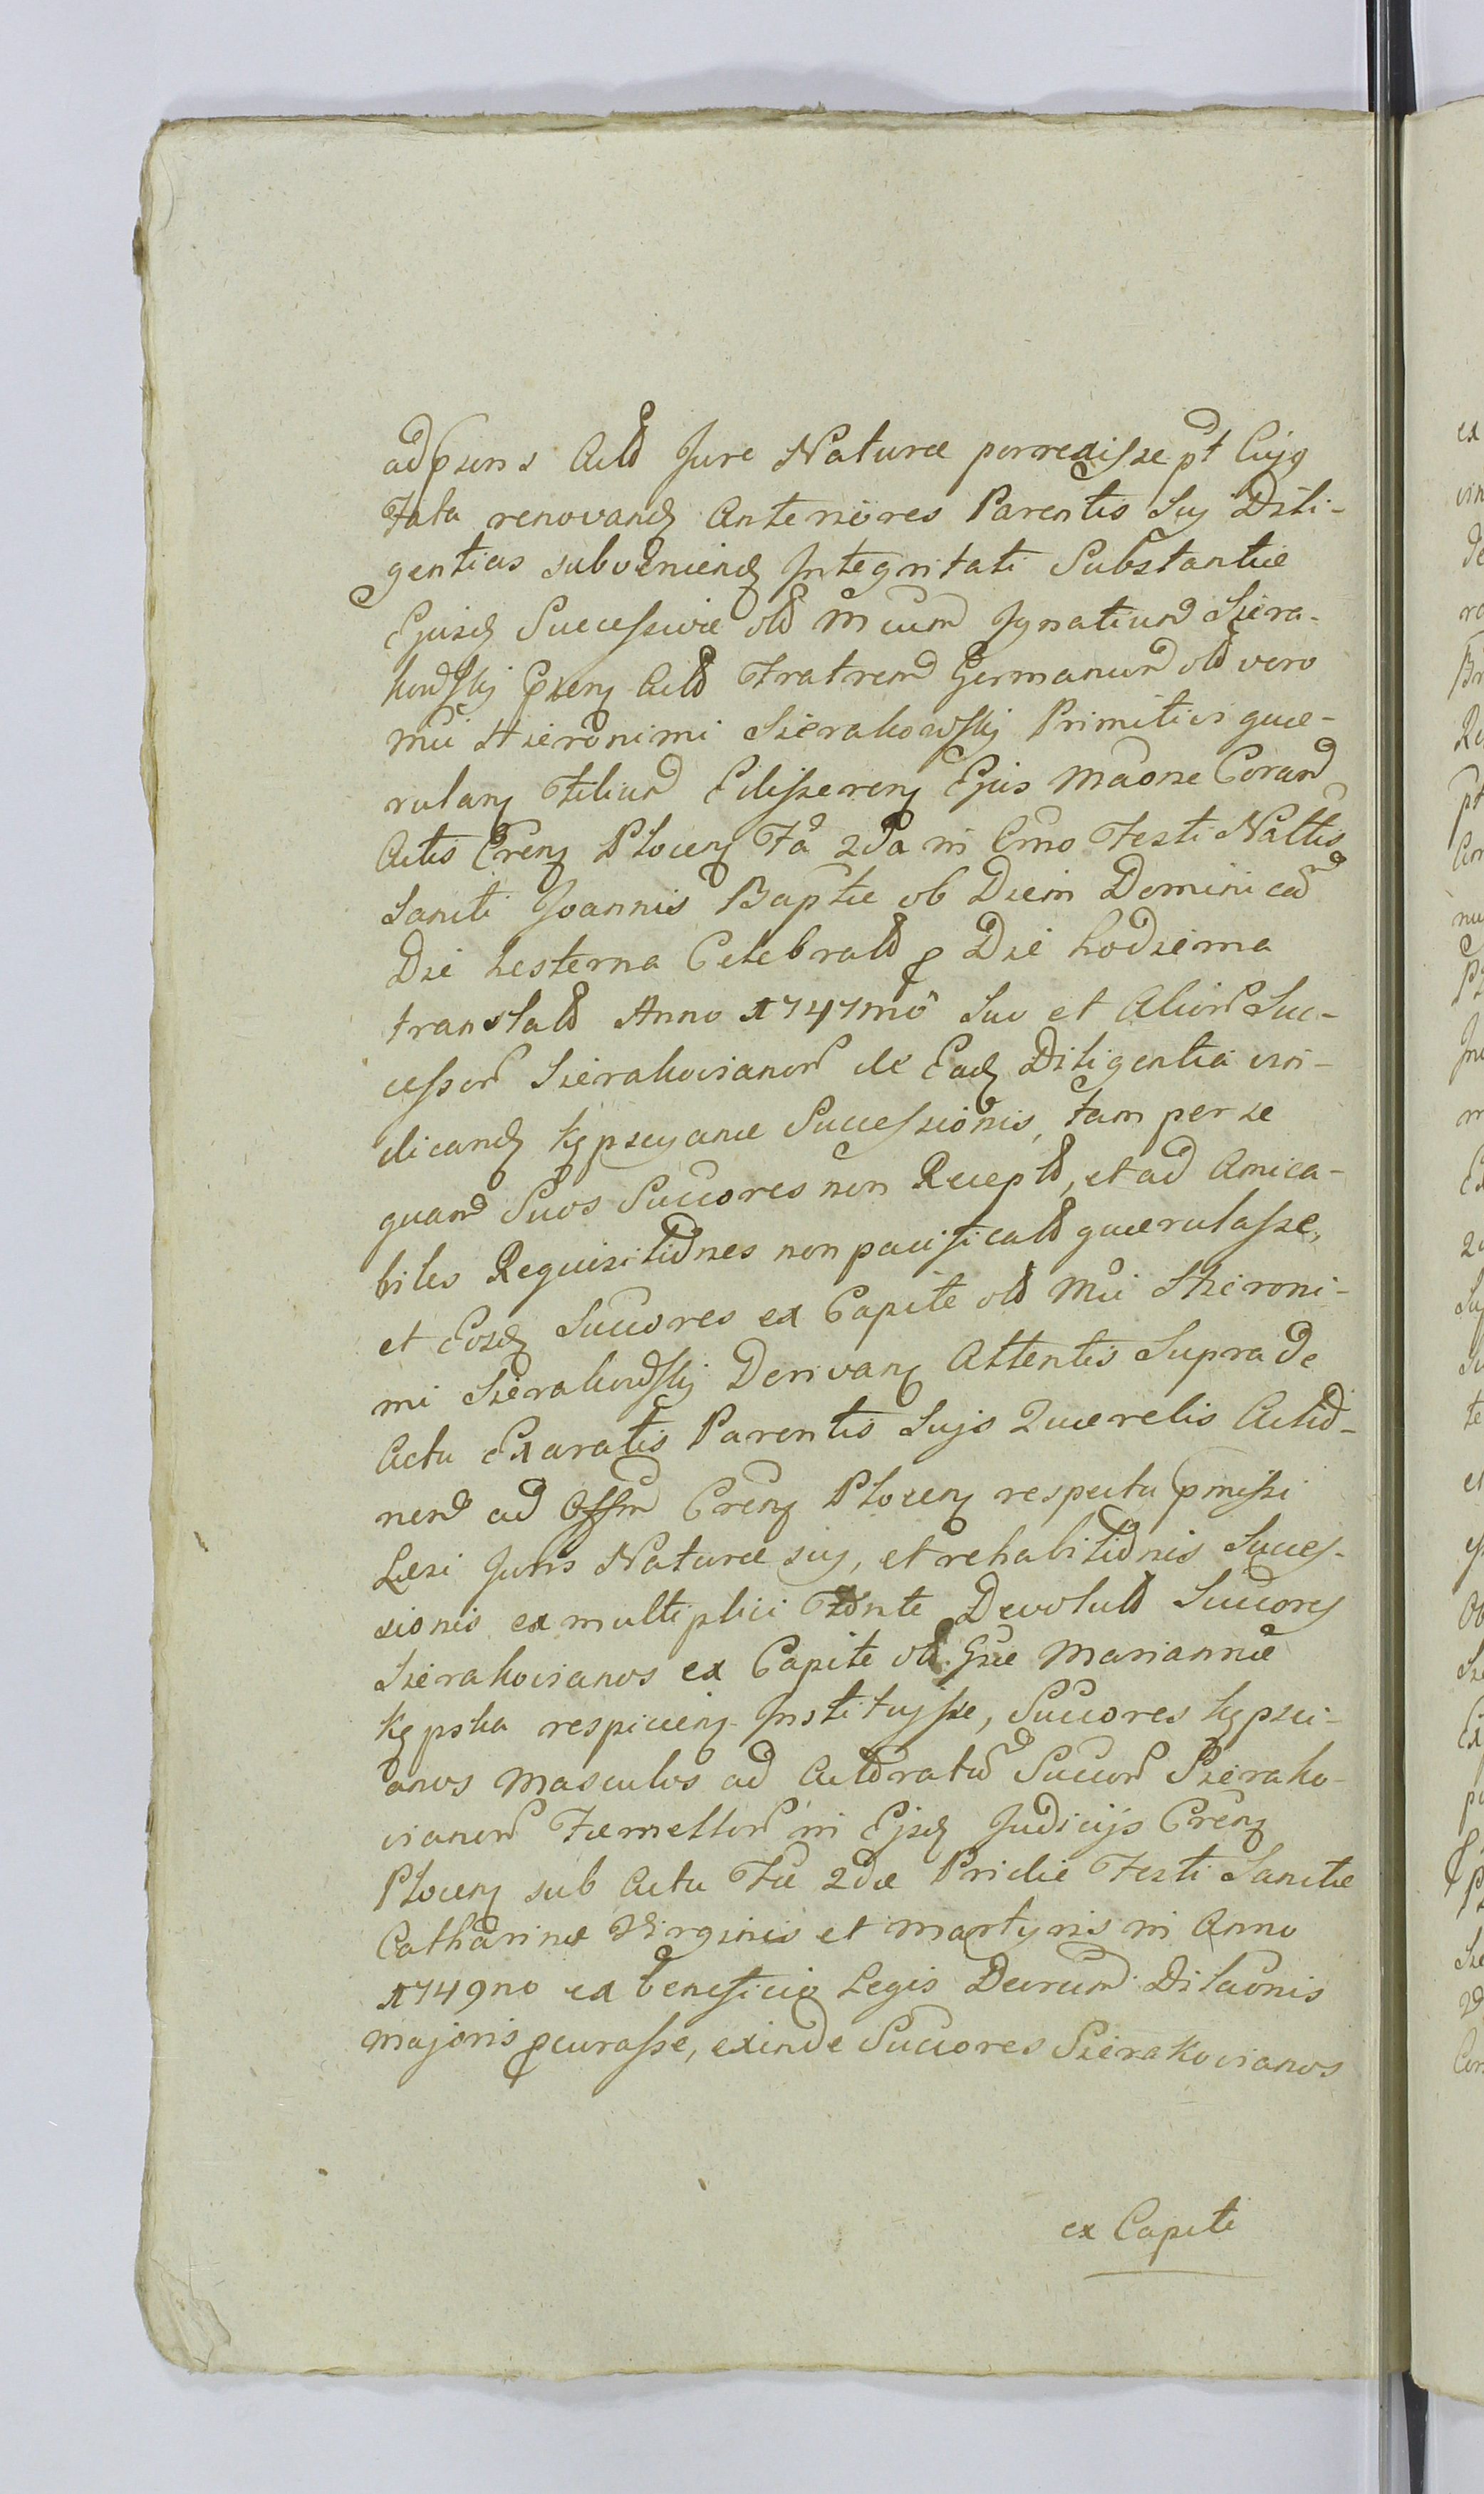 adpsens Actõ Jure Naturæ porrexisse pt Cujg
Fata renovandʒ Anteriores Parentis Suj Dili-
gentias subveniendʒ Integritati Substantiæ
Ejusdʒ Successivæ olõ Mcum Ignatium Siera-
kowskj Actõ Fratrem Germanum olõ vero
Mci Hieronimi Sierakowskj Primitivi quæ-
rulanʒ Filium Edisserenʒ Ejus Maõne Coram
Actis Crenʒ Plocenʒ Fa 2da in Cmo Festi Nattis
Sancti Joannis Baptæ ob Diem Dominicam
Die hesterna Celebratõ p Die hodierna
translatõ Anno 1747mo Suo et Alior Suc-
cessor Sierakovianor de Eadʒ Diligentia vin-
dicandʒ Kępscyanæ Successionis, tam per se
quam Suos Succores non Receptõ, et ad Amica-
biles Requisitiones non pacificatõ quærulasse,
et Eosdʒ Succores ex Capite olõ Mci Hieroni-
mi Sierakowskj Derivanʒ Attentis Supra de
Actu Exaratis Parentis Sujs Quærelis Actio-
nem ad Offm Crenʒ Plocenʒ respectu pmissi
Læsi Juris Naturæ suj, et rehabitionis Succes-
sionis ex multiplici Fonte Devolutõ Succores
Sierakovianos ex Capite olõ Gsæ Mariannæ
Kępska respicienʒ Instituisse, Succores Kępsci-
anos Masculos ad Succor Sierako-
vianor Fæmellor in Ejsdʒ Judicijs Crenʒ
Plocenʒ sub Actu Fæ 2dæ Pridie Festi Sanctæ
Catharinæ Virginis et Martyris in Anno
1749no ex beneficio Legis Decrum Dilaõnis
majoris pcurasse, exinde Succores Sierakovianos
ex Capite